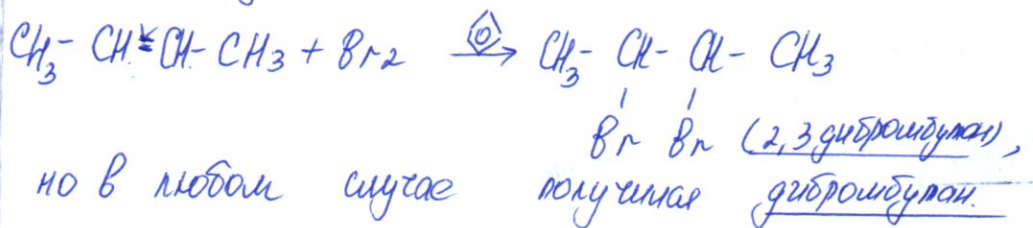 CH3 - CH = CH - CH3 + Br2 → CH3 - CH - CH - CH3
Br Br (2,3 дибромбутан),
но в любом случае получится дибромбутан.